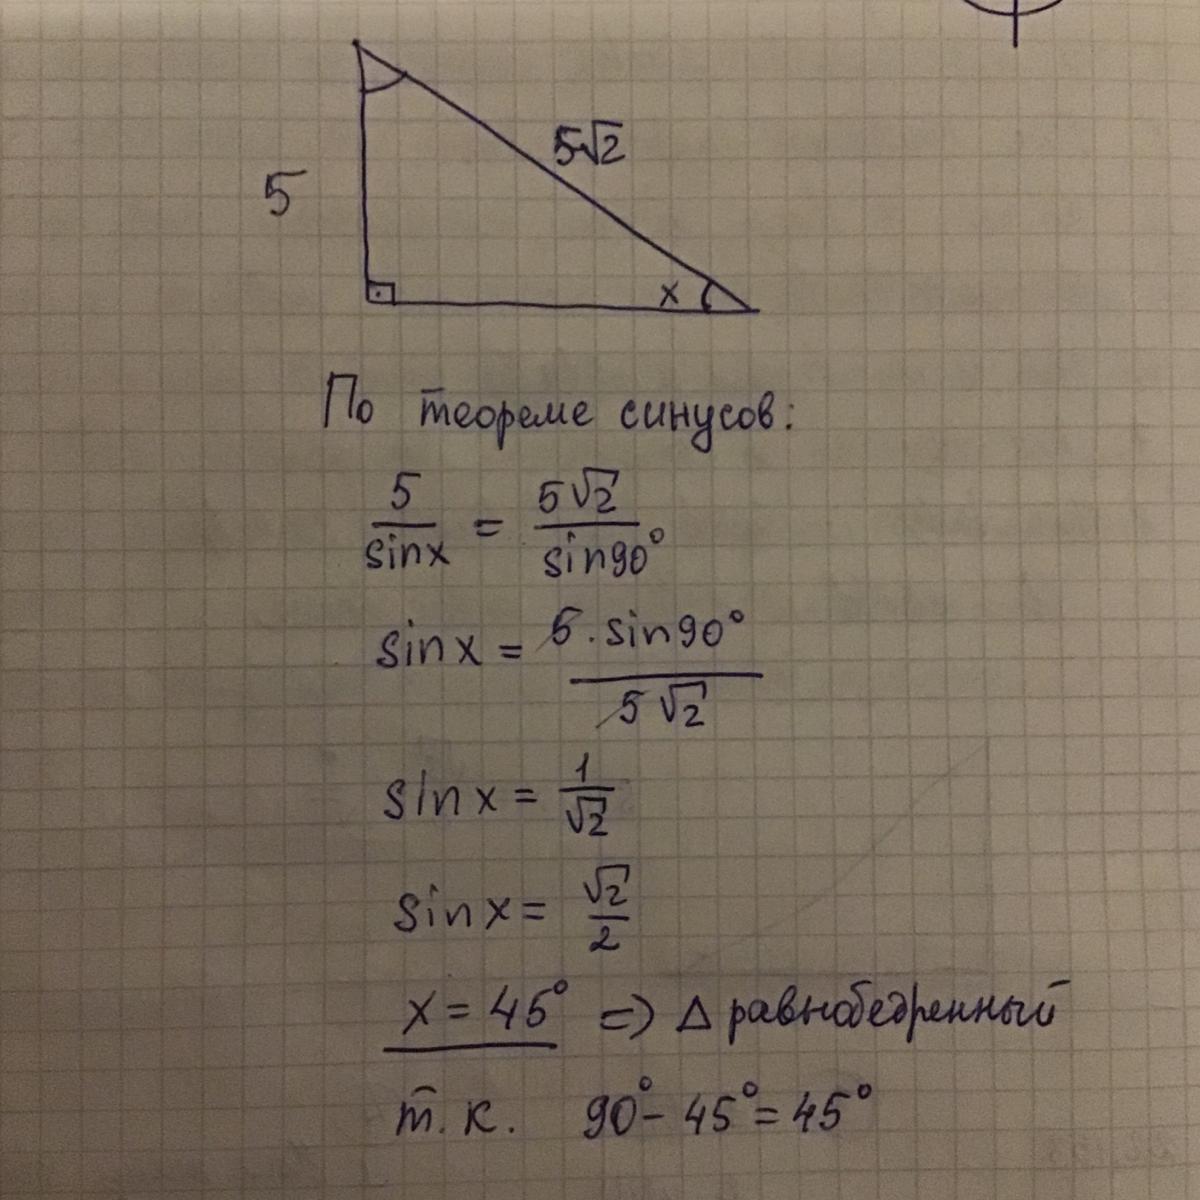 5√2
5
x
По теореме синусов:
5/sinx = 5√2/sin90°
sinx = 5·sin90°/5√2
sinx = 1/√2
sinx = √2/2
x = 45° => Δ равнобедренный
т.к. 90° - 45° = 45°